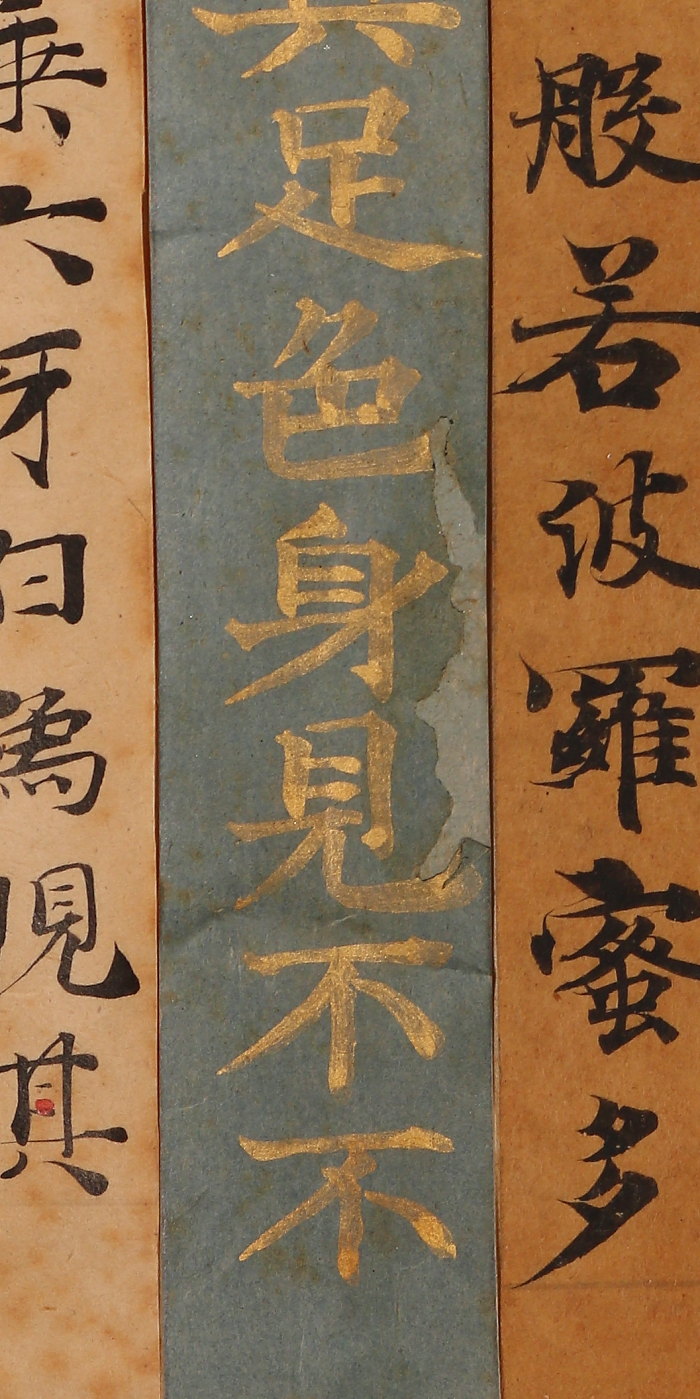 般若波羅蜜多
具足色身見不不
乗六牙白象現其